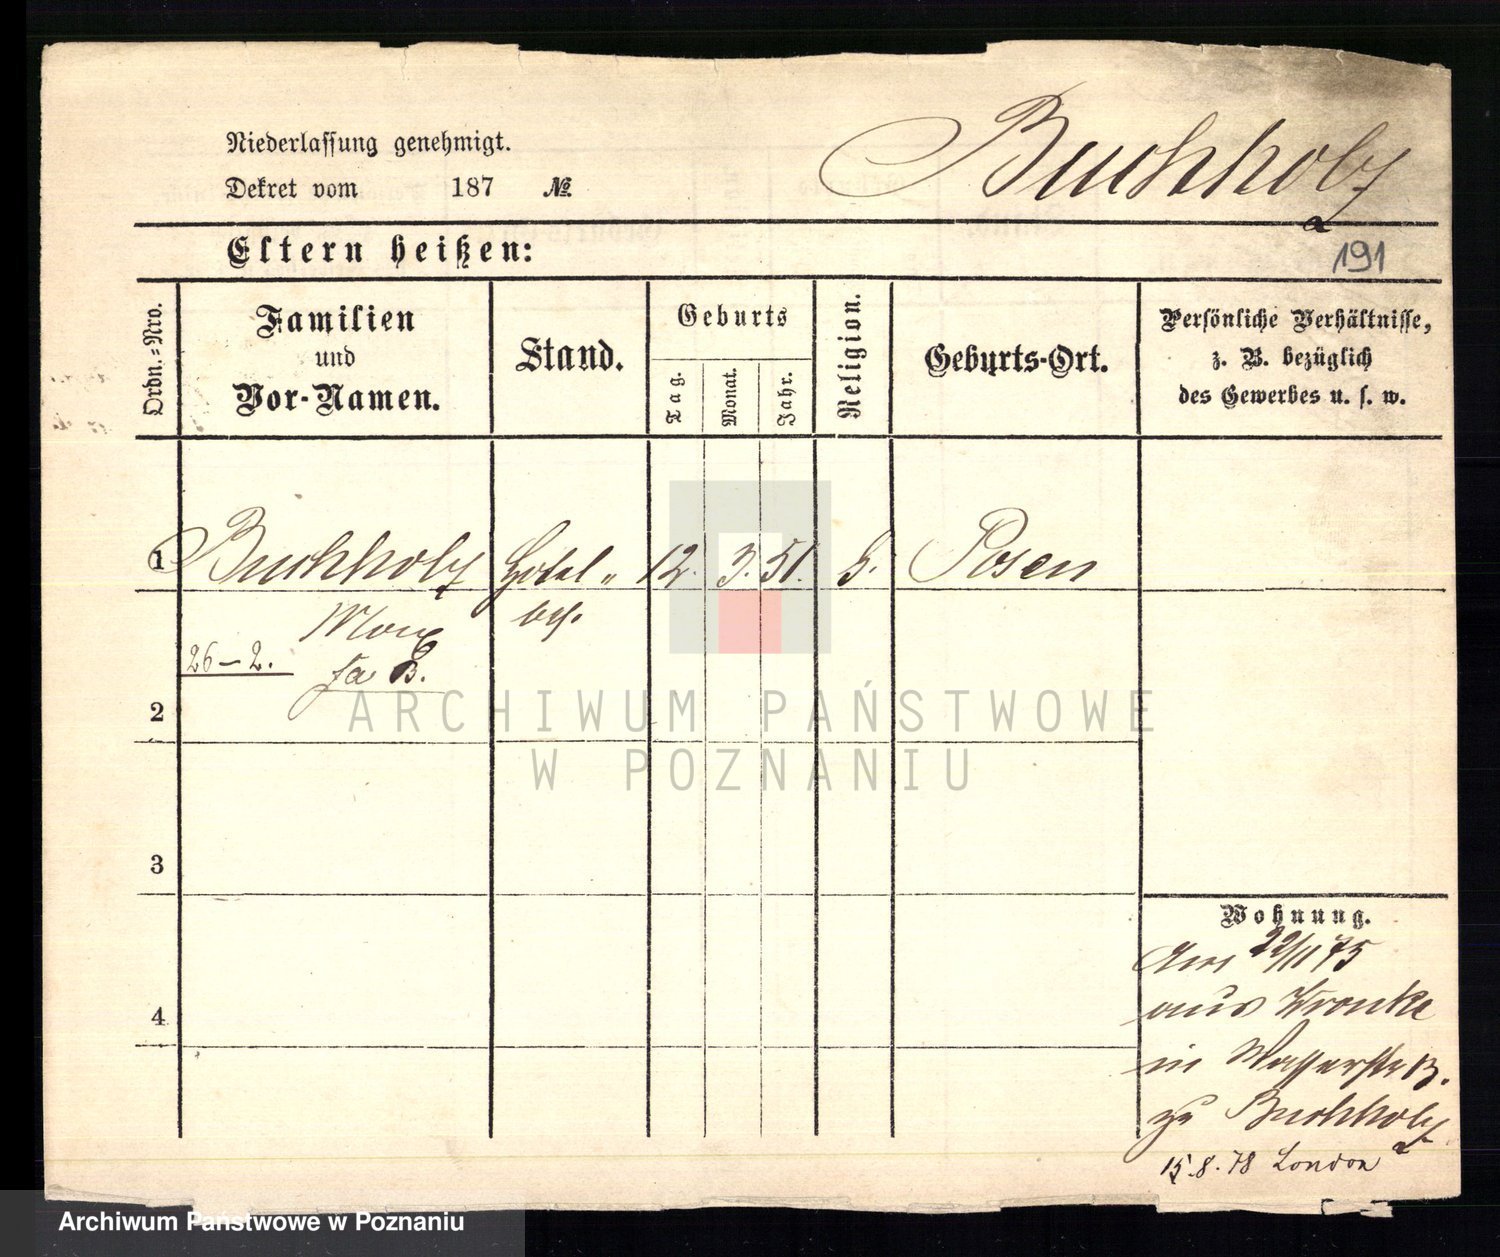 Niederlassung genehmigt.
Dekret vom 187 №
Buchholz
191
Eltern heißen:
Ordn.=Nro.
Familien
und
Vor-Namen.
Stand.
Geburts
Tag.
Monat.
Jahr.
Religion.
Geburts-Ort.
Persönliche Verhältnisse,
z. B. bezüglich
des Gewerbes u. s. w.
1 Buchholz Hotel„ 12. 3. 51. Posen
bes.
Max
26–2.
B.
2
3
4
Wohnung.
Am 22/11 75
aus Wronke
in
zu Buchholz
15.8.78 London
ARCHIWUM PAŃSTWOWE
W POZNANIU
Archiwum Państwowe w Poznaniu